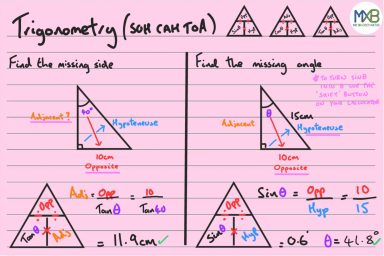 Trigonometry (SOH CAH TOA)
MXB
Find the missing side
Adjacent?
60°
Hypoteneuse
10cm
Opposite
Opp
Tanθ
Adj
Adj = Opp / Tanθ = 10 / Tan60
= 11.9cm ✓
Find the missing angle
* TO TURN SINθ
INTO θ USE THE
'SHIFT' BUTTON
ON YOUR CALCULATOR
Adjacent
θ
15cm
Hypoteneuse
10cm
Opposite
Opp
Sinθ
Hyp
Sinθ = Opp / Hyp = 10 / 15
= 0.6 θ = 41.8° ✓